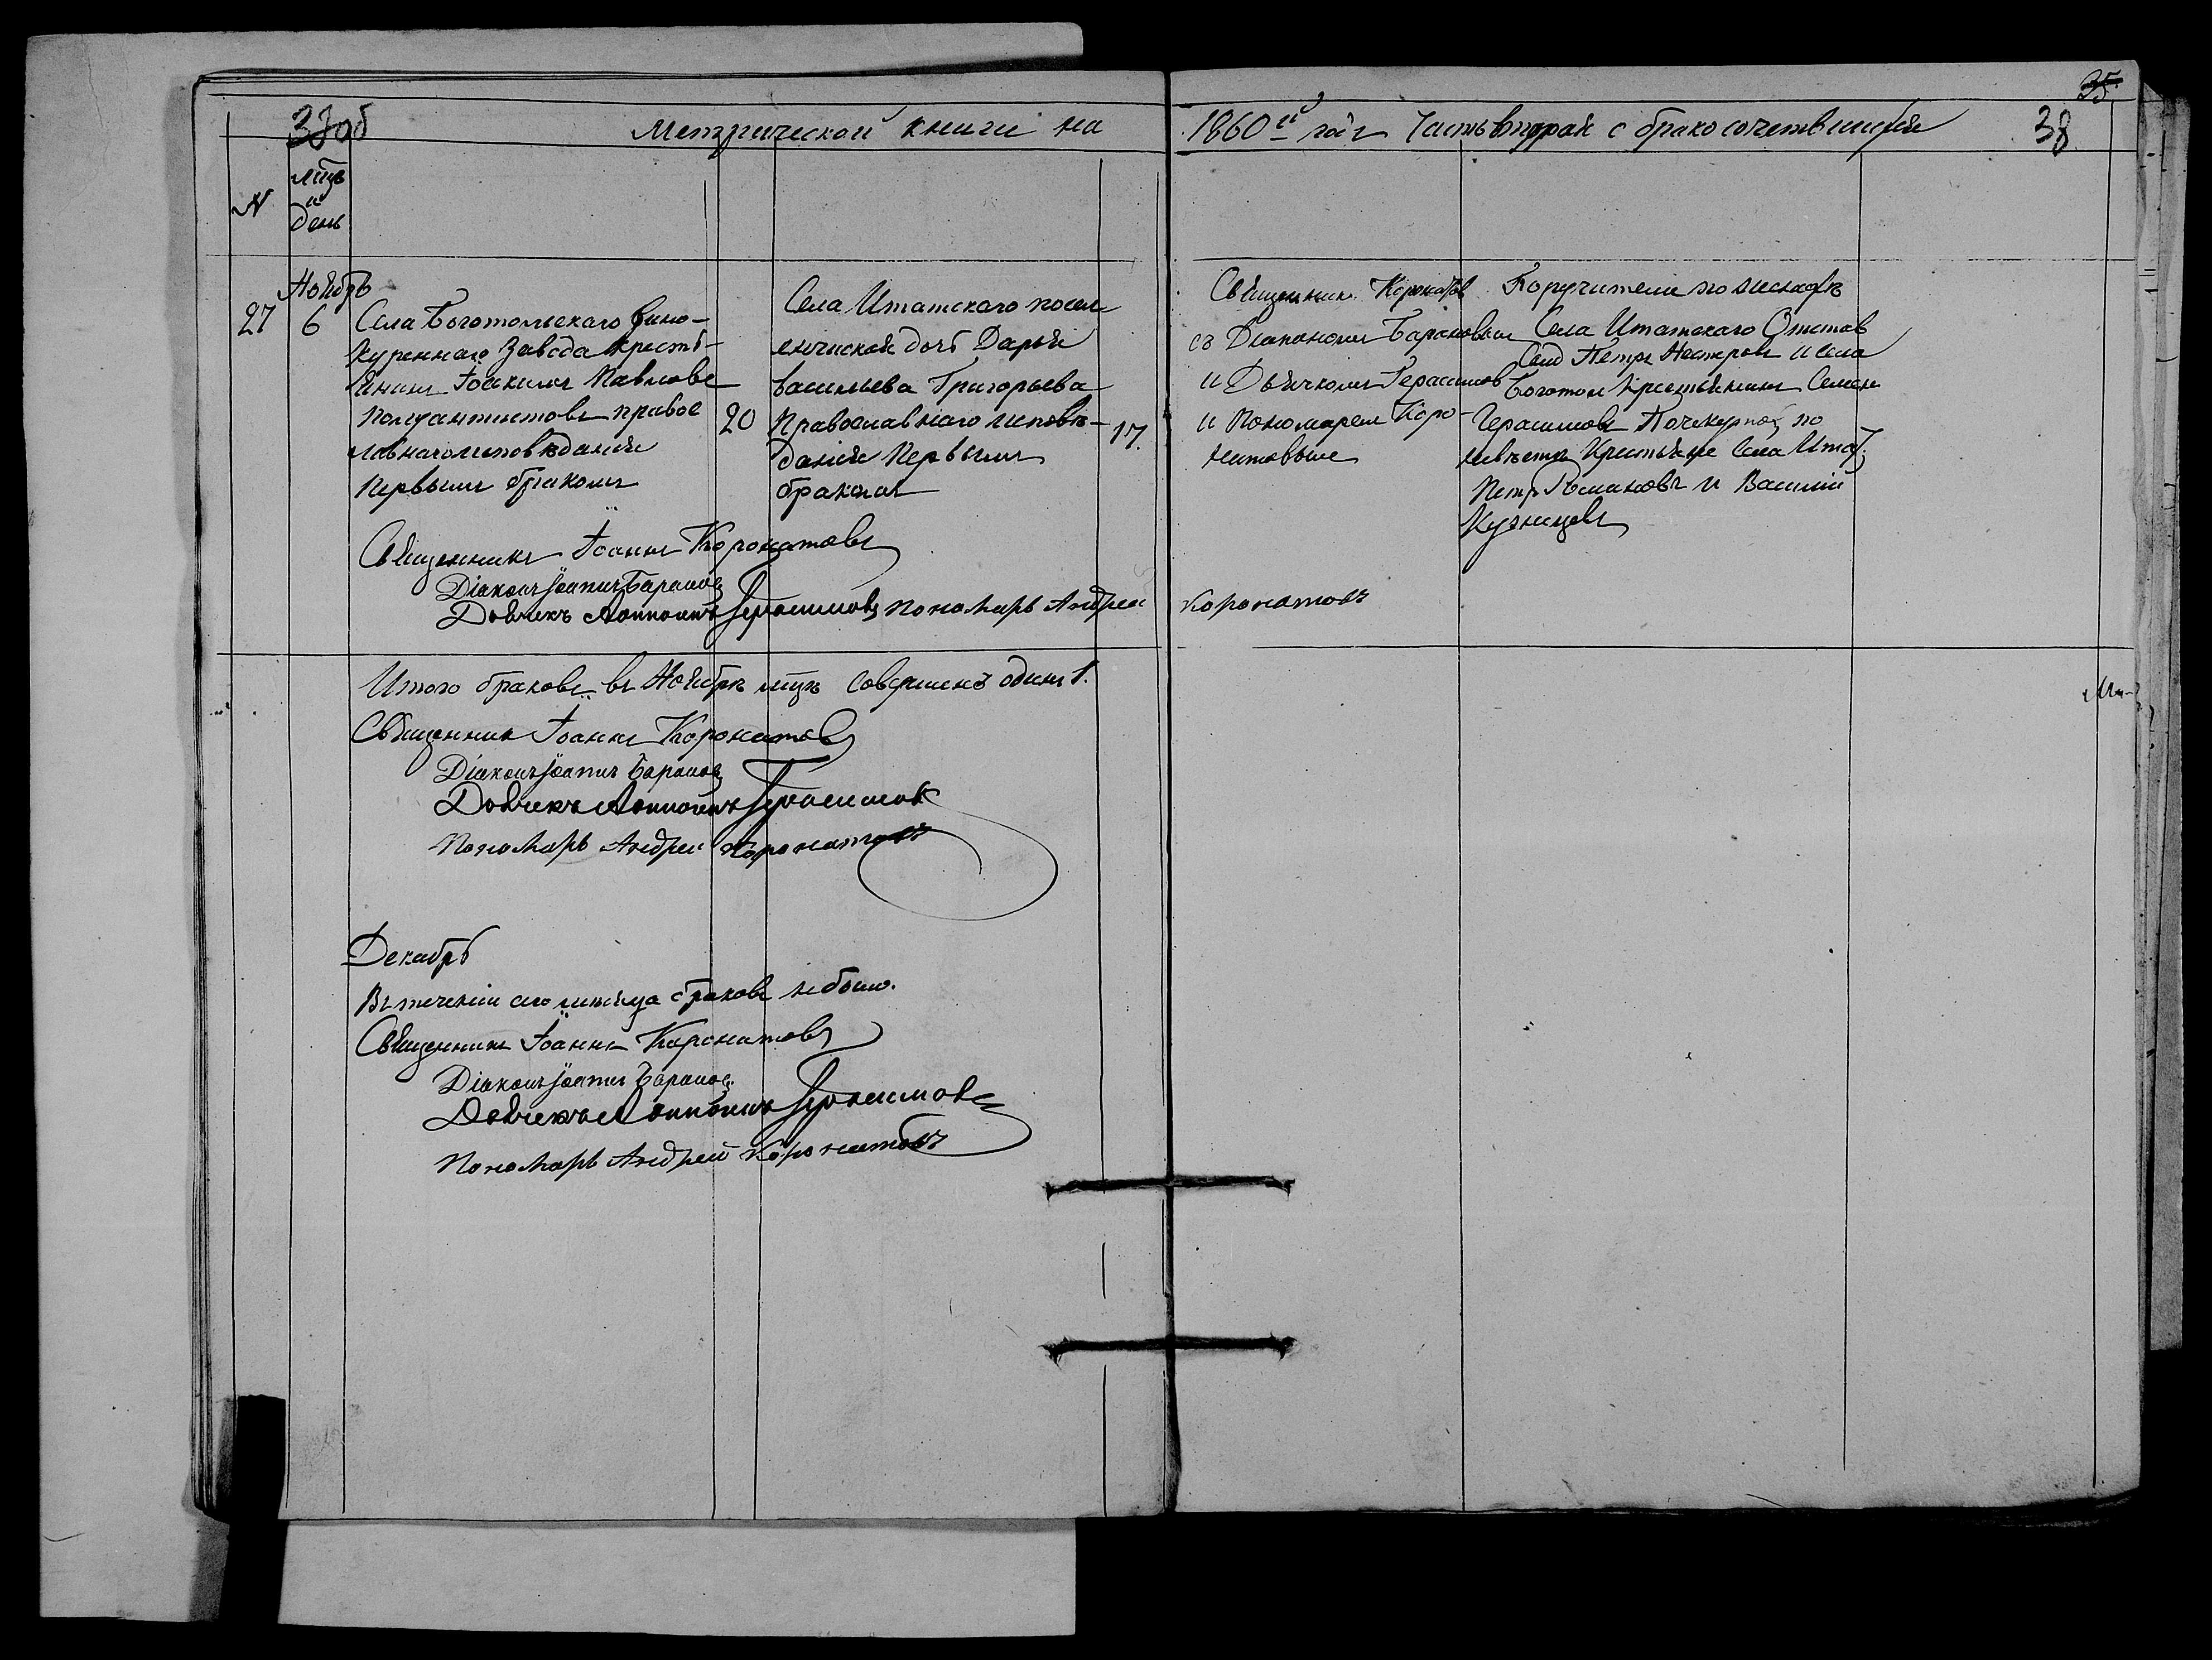 35
38об
Метрической книги на 1860й год Часть вторая о бракосочетавшихся
38
N
мцъ
и
день
Ноябрь
27
6
Села Боготольскаго Вино-
куреннаго Завода кресть-
янинъ Іоакимъ Павловъ
православ
наго исповѣданія
Первымъ бракомъ
20
Села Итатскаго посел
енческая дочь Дарья
Васильева Григорьева
Православнаго исповѣ-
данія Первымъ
бракомъ
17.
Священник Коронатов
съ Діакономъ Барановым
и Дьячкомъ Герасимов
и Пономарем Коро-
натовыме
Поручители по женихѣ
Села Итатскаго Отстав
Солд Петръ Нестеровъ и Села
Боготол Крестьянинъ Семен
Герасимовъ по
невѣсте Крестьяне Села Итат.
Петръ и Василій
Кузнецовъ
Священникъ Іоаннъ Коронатовъ
Діаконъ Іоаннъ Баранов
Дьячекъ Герасимовъ Пономарь Андрей Коронатовъ
Итого браковъ въ Ноябрѣ мцѣ совершенъ одинъ 1.
Священник Іоаннъ Коронатов
Діаконъ Іоаннъ Баранов
Дьячекъ Герасимов
Пономарь Андрей Коронатовъ
Декабрь
Въ теченіи сего месяца браковъ небыло.
Священникъ Іоаннъ Коронатовъ
Діаконъ Іоаннъ Баранов.
Дьячекъ Герасимовъ
Пономарь Андрей Коронатовъ